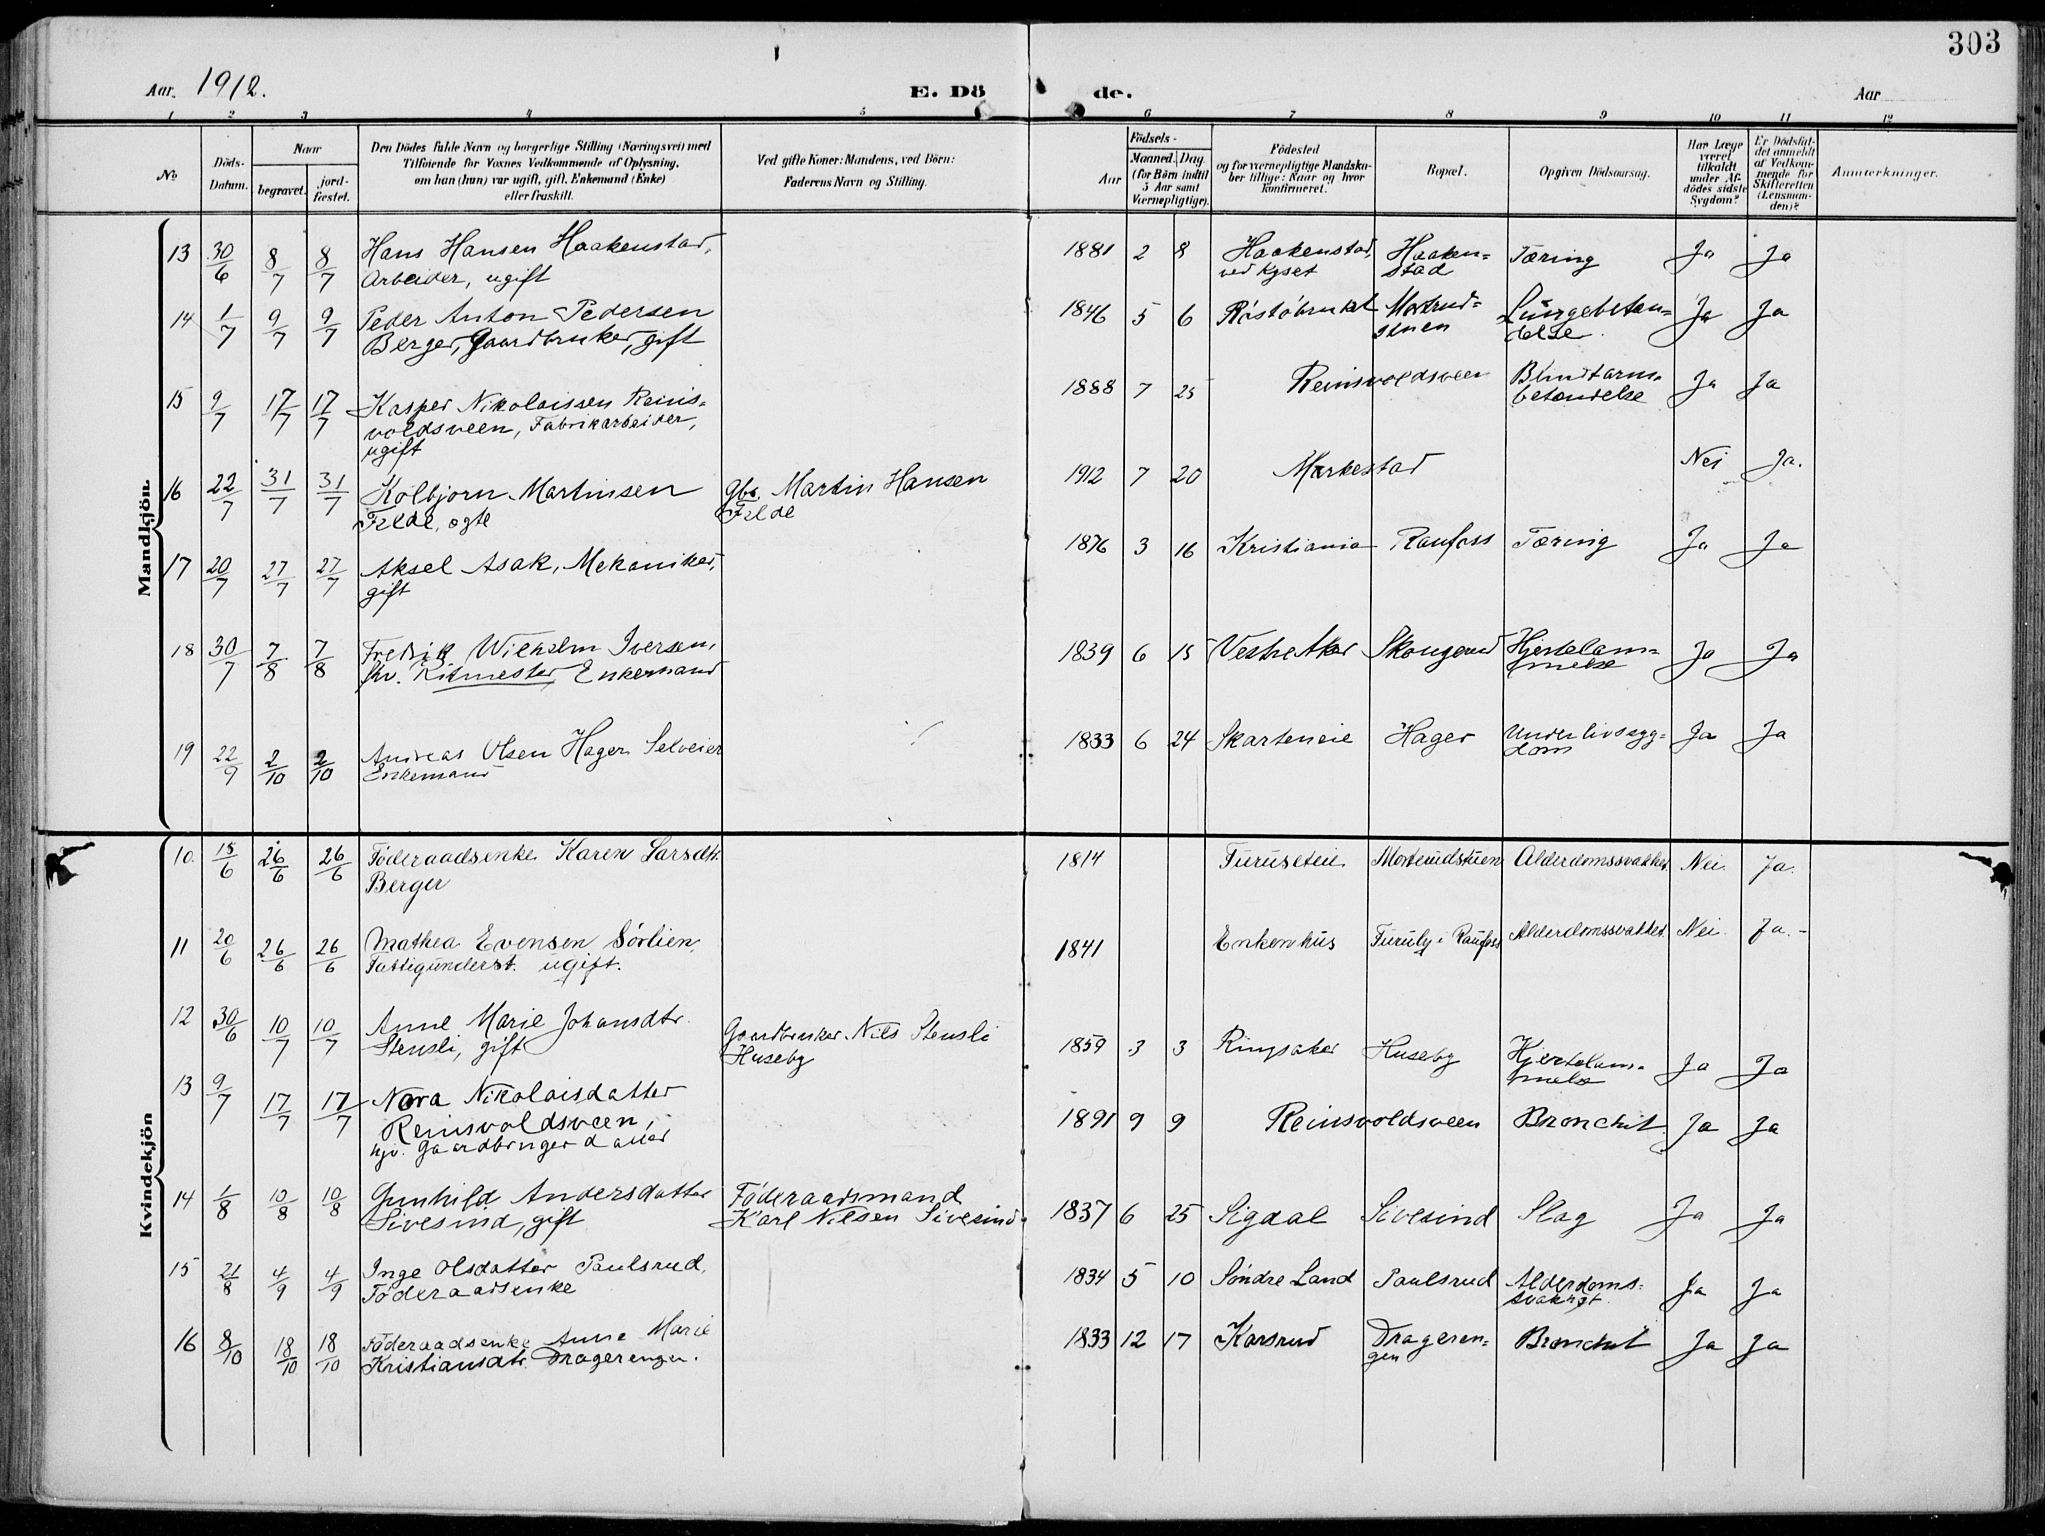 303
Aar. 1912.
E. Dö de.
Aar
1 2 3 4 5 6 7 8 9 10 11 12
No
Döds-
Datum.
Naar
begravet.
jord-
fæstet.
Den Dödes fulde Navn og borgerlige Stilling (Næringsvei) med
Tilføiende for Voxnes Vedkommende af Oplysning,
om han (hun) var ugift, gift, Enkemand (Enke)
eller fraskilt.
Ved gifte Koner: Mandens, ved Börn:
Faderens Navn og Stilling.
Födsels-
Aar
Maaned. Dag.
(for Börn indtil
5 Aar samt
Værnepligtige).
Födested
og for værnepligtige Mandska-
ber tillige: Naar og hvor
konfirmeret.
Bopæl.
Opgiven Dödsaarsag.
Har Læge
været
tilkaldt
under Af-
dödes sidste
Sygdom?
Er Dödsfal-
det anmeldt
af Vedkom-
mende for
Skifteretten
(Lensman-
den)?
Anmærkninger.
Mandkjön.
13 30/6 8/7 8/7 Hans Hansen Haakenstad, 1881 2 8 Haakenstad, Haaken= Tæring Ja Ja
Arbeider, ugift ved Kyset stad
14 1/7 9/7 9/7 Peder Anton Pedersen 1846 5 6 Røstøbruket Mortrud= Lungebetæn= Ja Ja
Berger, Gaardbruker, gift stuen delse
15 9/7 17/7 17/7 Kasper Nikolaissen Reins= 1888 7 25 Reinsvoldsveen Blindtarms= Ja Ja
voldsveen, Fabrikarbeider, betændelse
ugift
16 22/7 31/7 31/7 Kolbjørn Martinsen Gbr. Martin Hansen 1912 7 20 Markestad Nei Ja.
Filde, egte Filde
17 20/7 27/7 27/7 Aksel Asak, Mekaniker, 1876 3 16 Kristiania Raufoss Tæring Ja Ja
gift
18 30/7 7/8 7/8 Fredrik Wilhelm Iversen, 1839 6 15 Vestre Aker Skougerud Hjertelam= Ja Ja
fhv. Ritmester, Enkemand melse
19 22/9 2/10 2/10 Andreas Olsen Hager Selveier 1833 6 24 Skarteneie Hager Underlivssyg= Ja Ja
Enkemand dom
Kvindekjön
10. 18/6 26/6 26/6 Föderaadsenke Karen Larsdtr. 1814 Furuseteie Morterudstuen Alderdomssvakhet. Nei. Ja.
Berger
11 20/6 26/6 26/6 Mathea Evensen Sørlien, 1841 Enkenhus Furuly i Raufoss Alderdomssvakhet. Nei. Ja.-
Fattigunderst. ugift.
12 30/6 10/7 10/7 Anne Marie Johansdtr. Gaardbruker Nils Stensli 1859 3 3 Ringsaker Huseby Hjertelam= Ja Ja
Stensli, gift Huseby melse
13 9/7 17/7 17/7 Nora Nikolaisdatter 1891 9 9 Reinsvoldsveen Bronchit Ja Ja
Reinsvoldsveen,
hjv. Gaardbrugerdatter
14 1/8 10/8 10/8 Gunhild Andersdatter Föderaadsmand 1837 6 25 Sigdal Sivesind Slag Ja Ja
Sivesind, gift Karl Nilsen Sivesind.
15 21/8 4/9 4/9 Inge Olsdatter Paulsrud, 1834 5 10 Søndre Land Paulsrud Alderdoms= Ja Ja
Föderaadsenke svakhet
16 8/10 18/10 18/10 Föderaadsenke Anne Marie 1833 12 17 Karsrud Drageren= Bronchit Ja Ja
Kristiansdtr. Dragerengen. gen